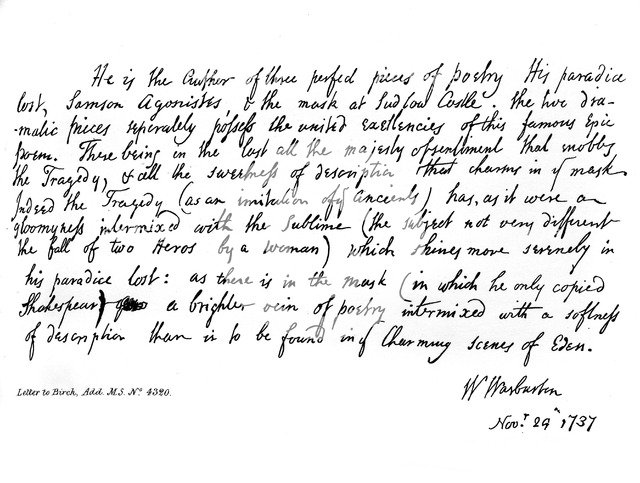 He is the Author of three perfect pieces of poetry His paradice
lost, Samson Agonistes, & the mask at Ludlow Castle. the two dra-
-matic pieces seperately possess the united excellencies of this famous Epic
poem. There being in the last all the majesty of sentiment that
the Tragedy, & all the sweetness of description that charms in yͤ mask
Indeed the Tragedy (as an imitation of yͤ Ancients) has, as it were a
gloomyness intermixed with the Sublime (the subject not very different
the fall of two Heros by a woman) which shines more serenely in
his paradice lost: as there is in the mask (in which he only copied
Shakespear) a brighter vein of poetry intermixed with a softness
of description than is to be found in yͤ Charming scenes of Eden.
Letter to Birch, Add. M.S. Nº. 4320.
W Warburton
Novͬ. 24ͭͪ 1737